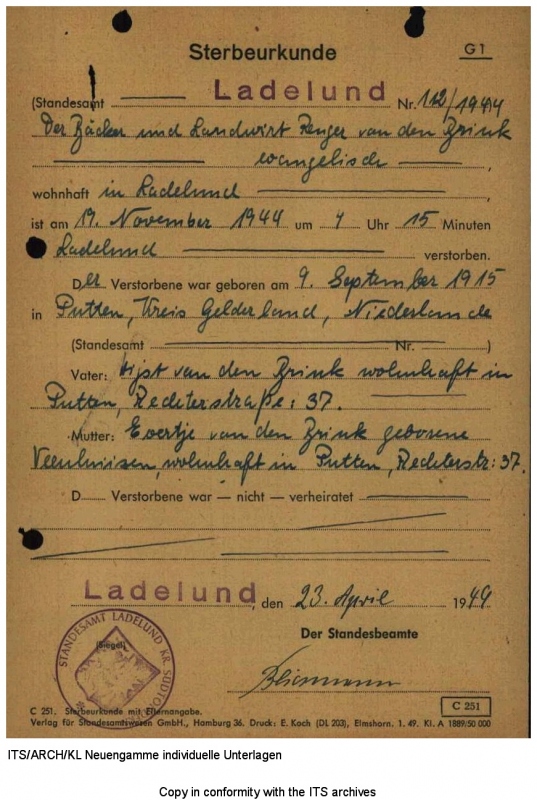 Sterbeurkunde
G 1
(Standesamt Ladelund Nr. 112/1944
Der Bäcker und Landwirt Renger van den Brink
evangelisch ,
wohnhaft in Ladelund ,
ist am 19. November 1944 um 4 Uhr 15 Minuten
Ladelund verstorben.
Der Verstorbene war geboren am 9. September 1915
in Putten, Kreis Gelderland, Niederlande
(Standesamt Nr. )
Vater: van den Brink wohnhaft in
Putten, Rechterstraße: 37.
Mutter: Evertje van den Brink geborene
wohnhaft in Putten, Rechterstr: 37.
D Verstorbene war — nicht — verheiratet
Ladelund, den 23. April 1949
(Siegel)
STANDESAMT LADELUND KR. SÜDTO
Der Standesbeamte
C 251. Sterbeurkunde mit Elternangabe.
C 251
Verlag für Standesamtswesen GmbH., Hamburg 36. Druck: E. Koch (DL 203), Elmshorn. 1. 49. Kl. A 1889/50 000
ITS/ARCH/KL Neuengamme individuelle Unterlagen
Copy in conformity with the ITS archives